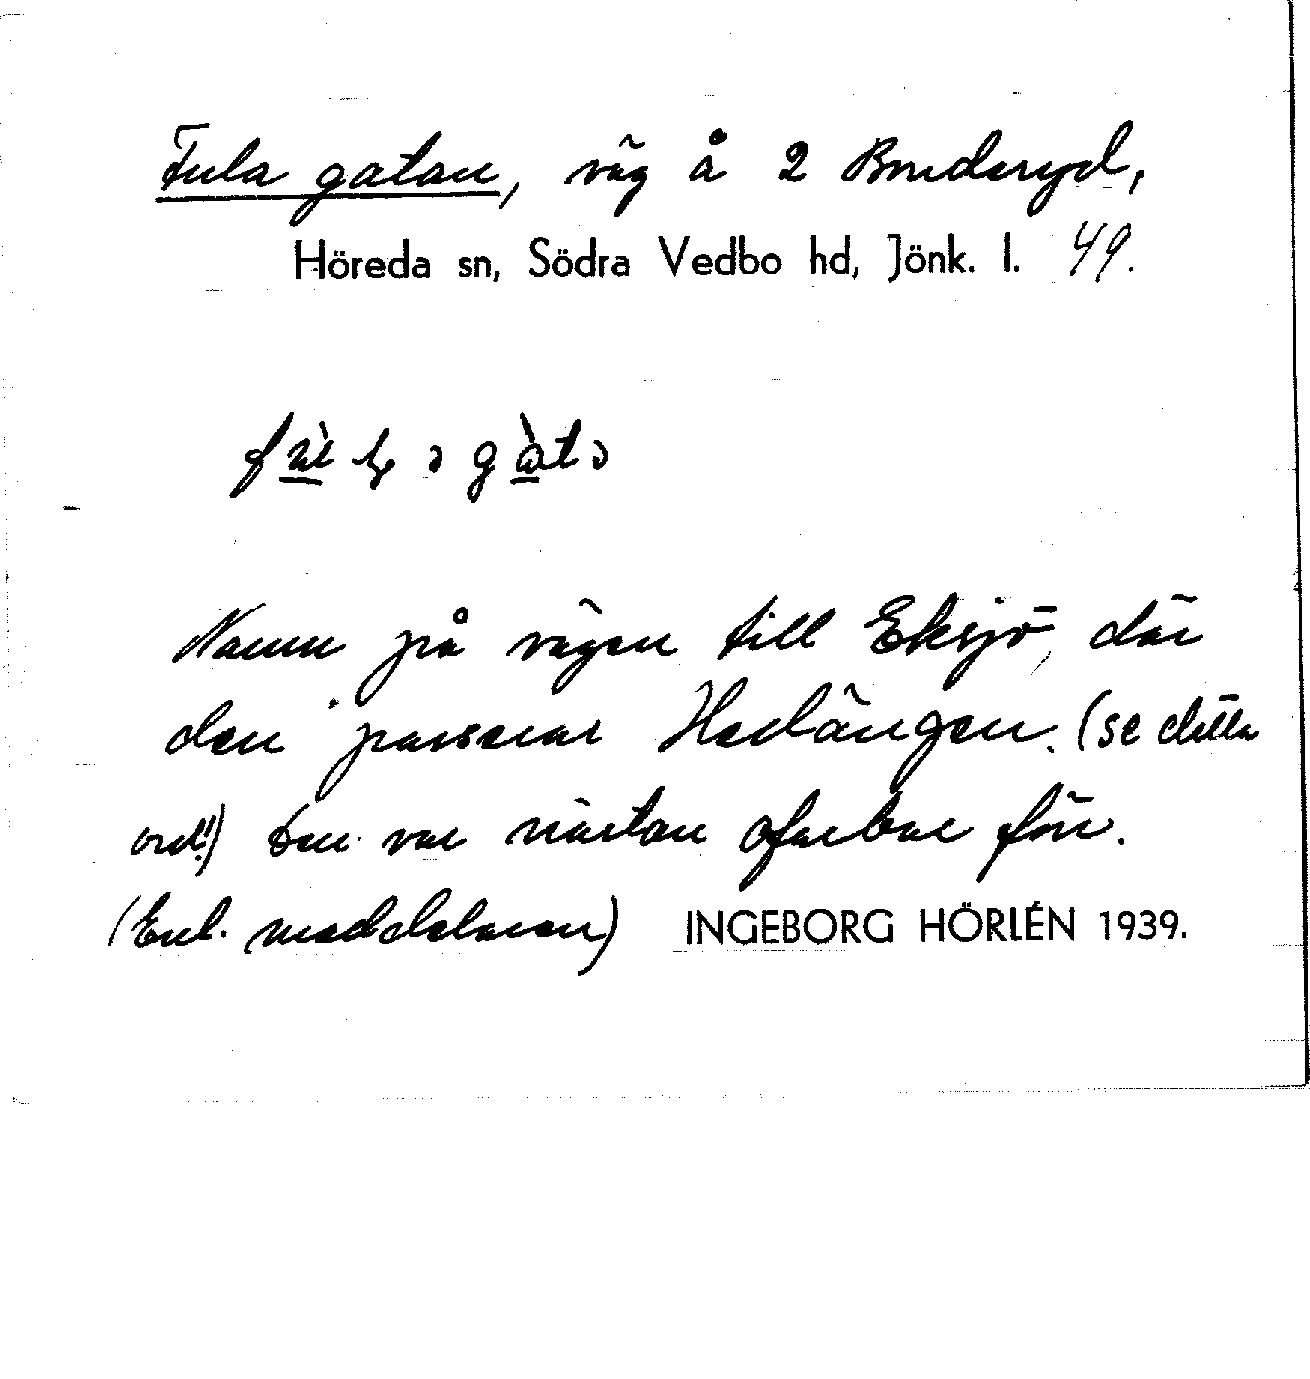 Fula gatan, väg å 2 Bruderyd,
Höreda sn, Södra Vedbo hd, Jönk. l. 49.
Namn på vägen till Eksjö, där
den passerar Hedängen. (se detta
ord!) Den var nästan ofarbar förr.
(Enl. meddelaren) INGEBORG HÖRLÉN 1939.